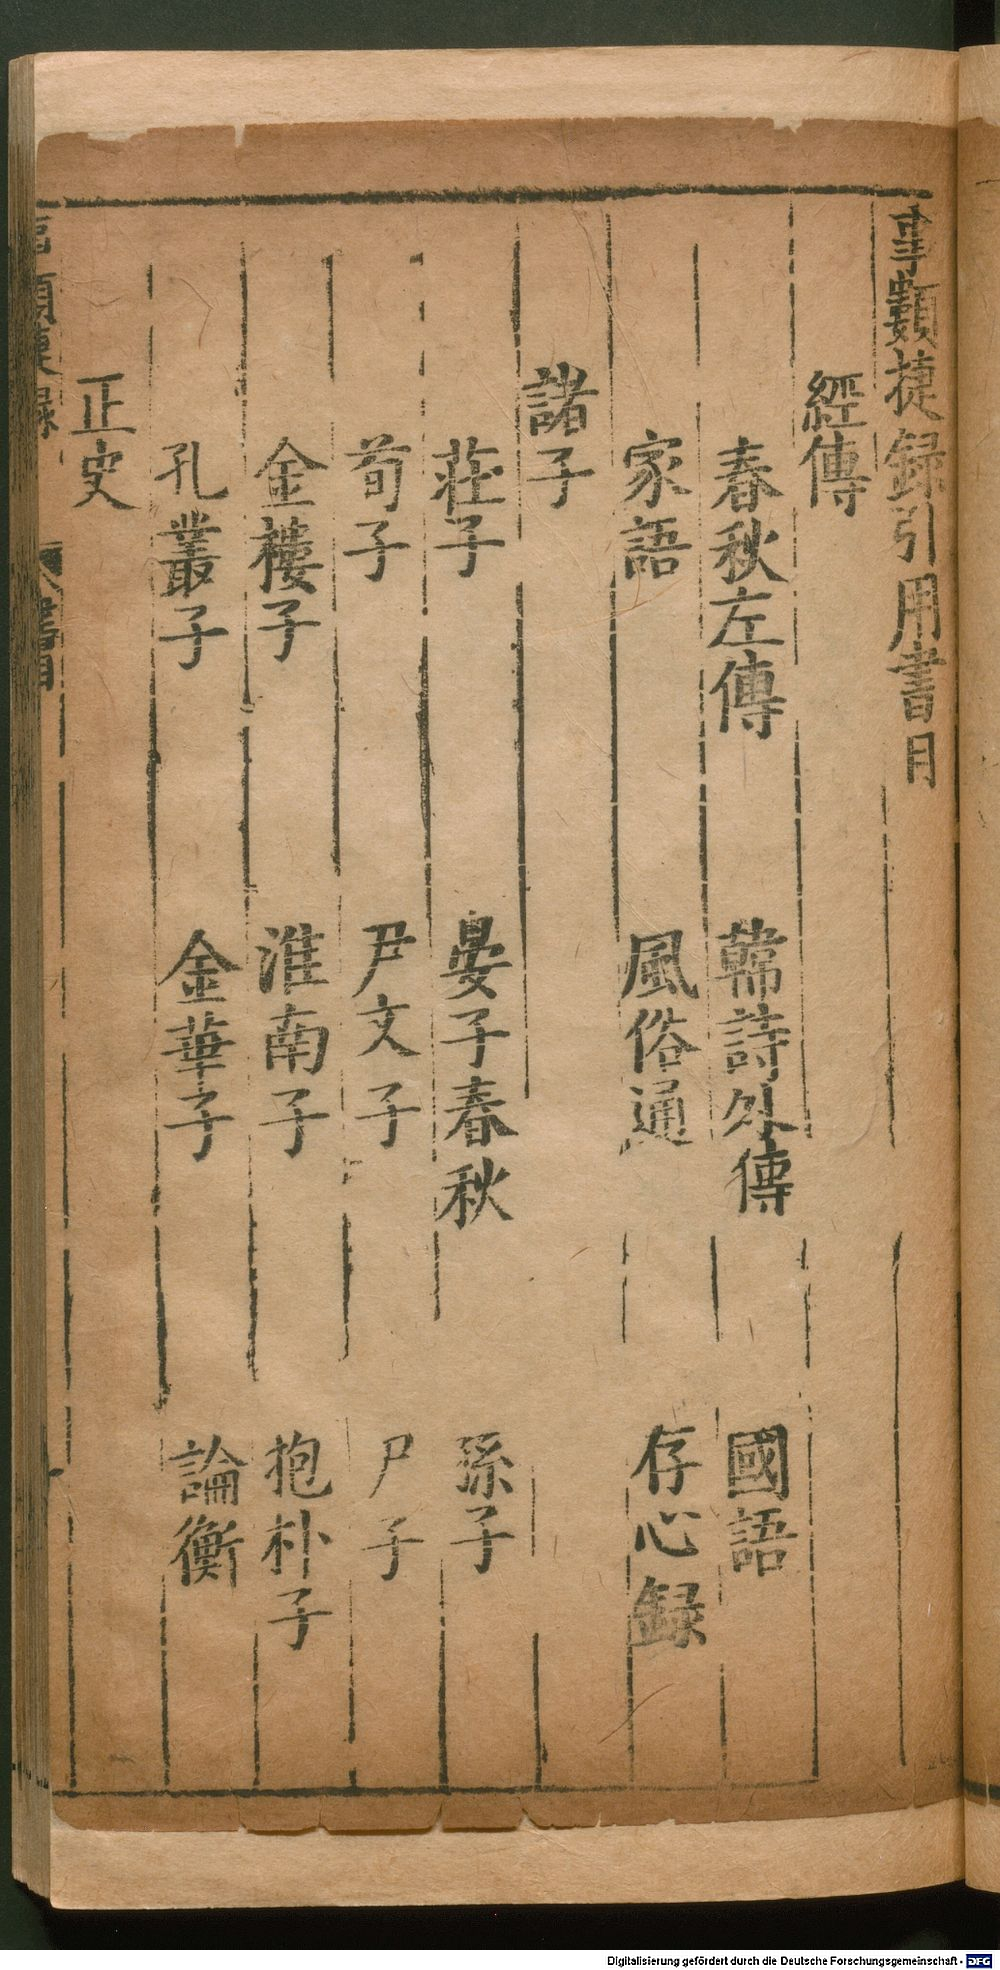 事類捷録引用書目
經傳
春秋左傳 韓詩外傳 國語
家語 風俗通 存心録
諸子
莊子 晏子春秋 孫子
荀子 尹文子 尸子
金樓子 淮南子 抱朴子
孔叢子 金華子 論衡
正史
Digitalisierung gefördert durch die Deutsche Forschungsgemeinschaft - DFG